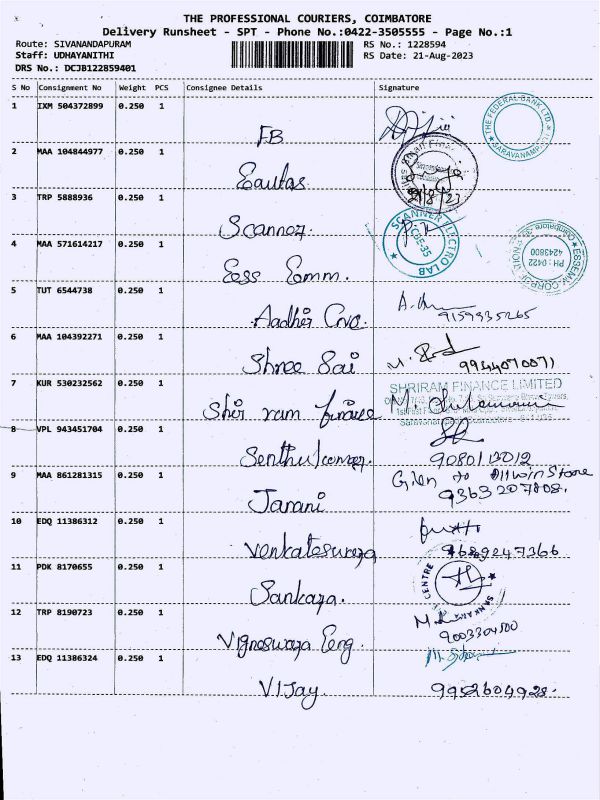 THE PROFESSIONAL COURIERS, COIMBATORE
Delivery Runsheet - SPT - Phone No.:0422-3505555 - Page No.:1
Route: SIVANANDAPURAM RS No.: 1228594
Staff: UDHAYANITHI RS Date: 21-Aug-2023
DRS No.: DCJB122859401
S No Consignment No Weight PCS Consignee Details Signature
1 IXM 504372899 0.250 1
FB
THE FEDERAL BANK LTD. SARAVANAMPATTI
2 MAA 104844977 0.250 1
21/8/23
3 TRP 5888936 0.250 1
Scanner.
SCANNER ELECTRO LAB
CBE-35
4 MAA 571614217 0.250 1
Eess Comm.
ESSEMM CORPORATION
PH: 0422
4243800
5 TUT 6544738 0.250 1
Aadhi
9159335265
6 MAA 104392271 0.250 1
Shree Sai 9944070071
7 KUR 530232562 0.250 1
SHRIRAM FINANCE LIMITED
Shri ram finance
8 VPL 943451704 0.250 1
9080113012
9 MAA 861281315 0.250 1
Given to Allwin Store
Jarani 9363207808.
10 EDQ 11386312 0.250 1
Venkateswara 9689247366
11 PDK 8170655 0.250 1
CENTRE
Sankara.
12 TRP 8190723 0.250 1
9003304500
Vigneswara Eng.
13 EDQ 11386324 0.250 1
Vijay 9952604928.